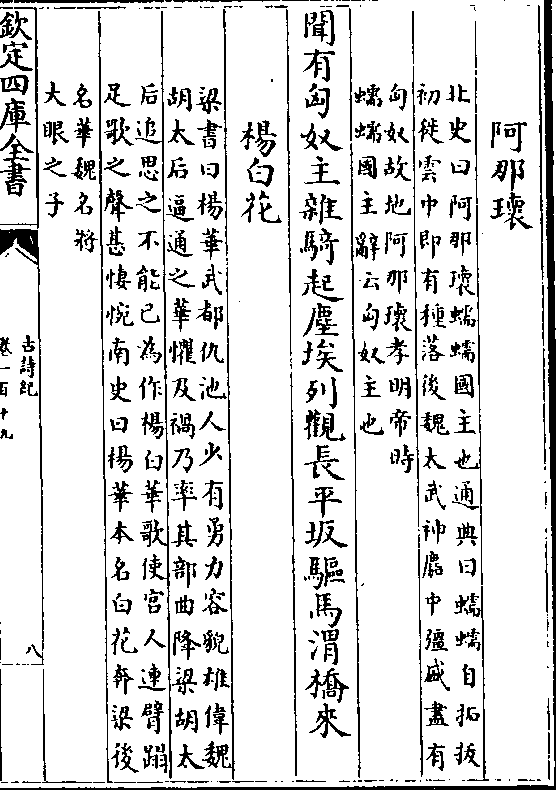 阿那瓌
北史曰阿那瓌蠕蠕國主也通典曰蠕蠕自拓拔
初徙雲中即有種落後魏太武神䴥中彊盛盡有
匈奴故地阿那瓌孝明帝時
蠕蠕國主辭云匈奴主也
聞有匈奴主雜騎起塵埃列觀長平坂驅馬渭橋來
楊白花
梁書曰楊華武都仇池人少有勇力容貌雄偉魏
胡太后逼通之華懼及禍乃率其部曲降梁胡太
后追思之不能已為作楊白華歌使宮人連臂蹋
足歌之聲甚悽惋南史曰楊華本名白花奔梁後
名華魏名將
大眼之子
欽定四庫全書
古詩紀
卷一百十九
八